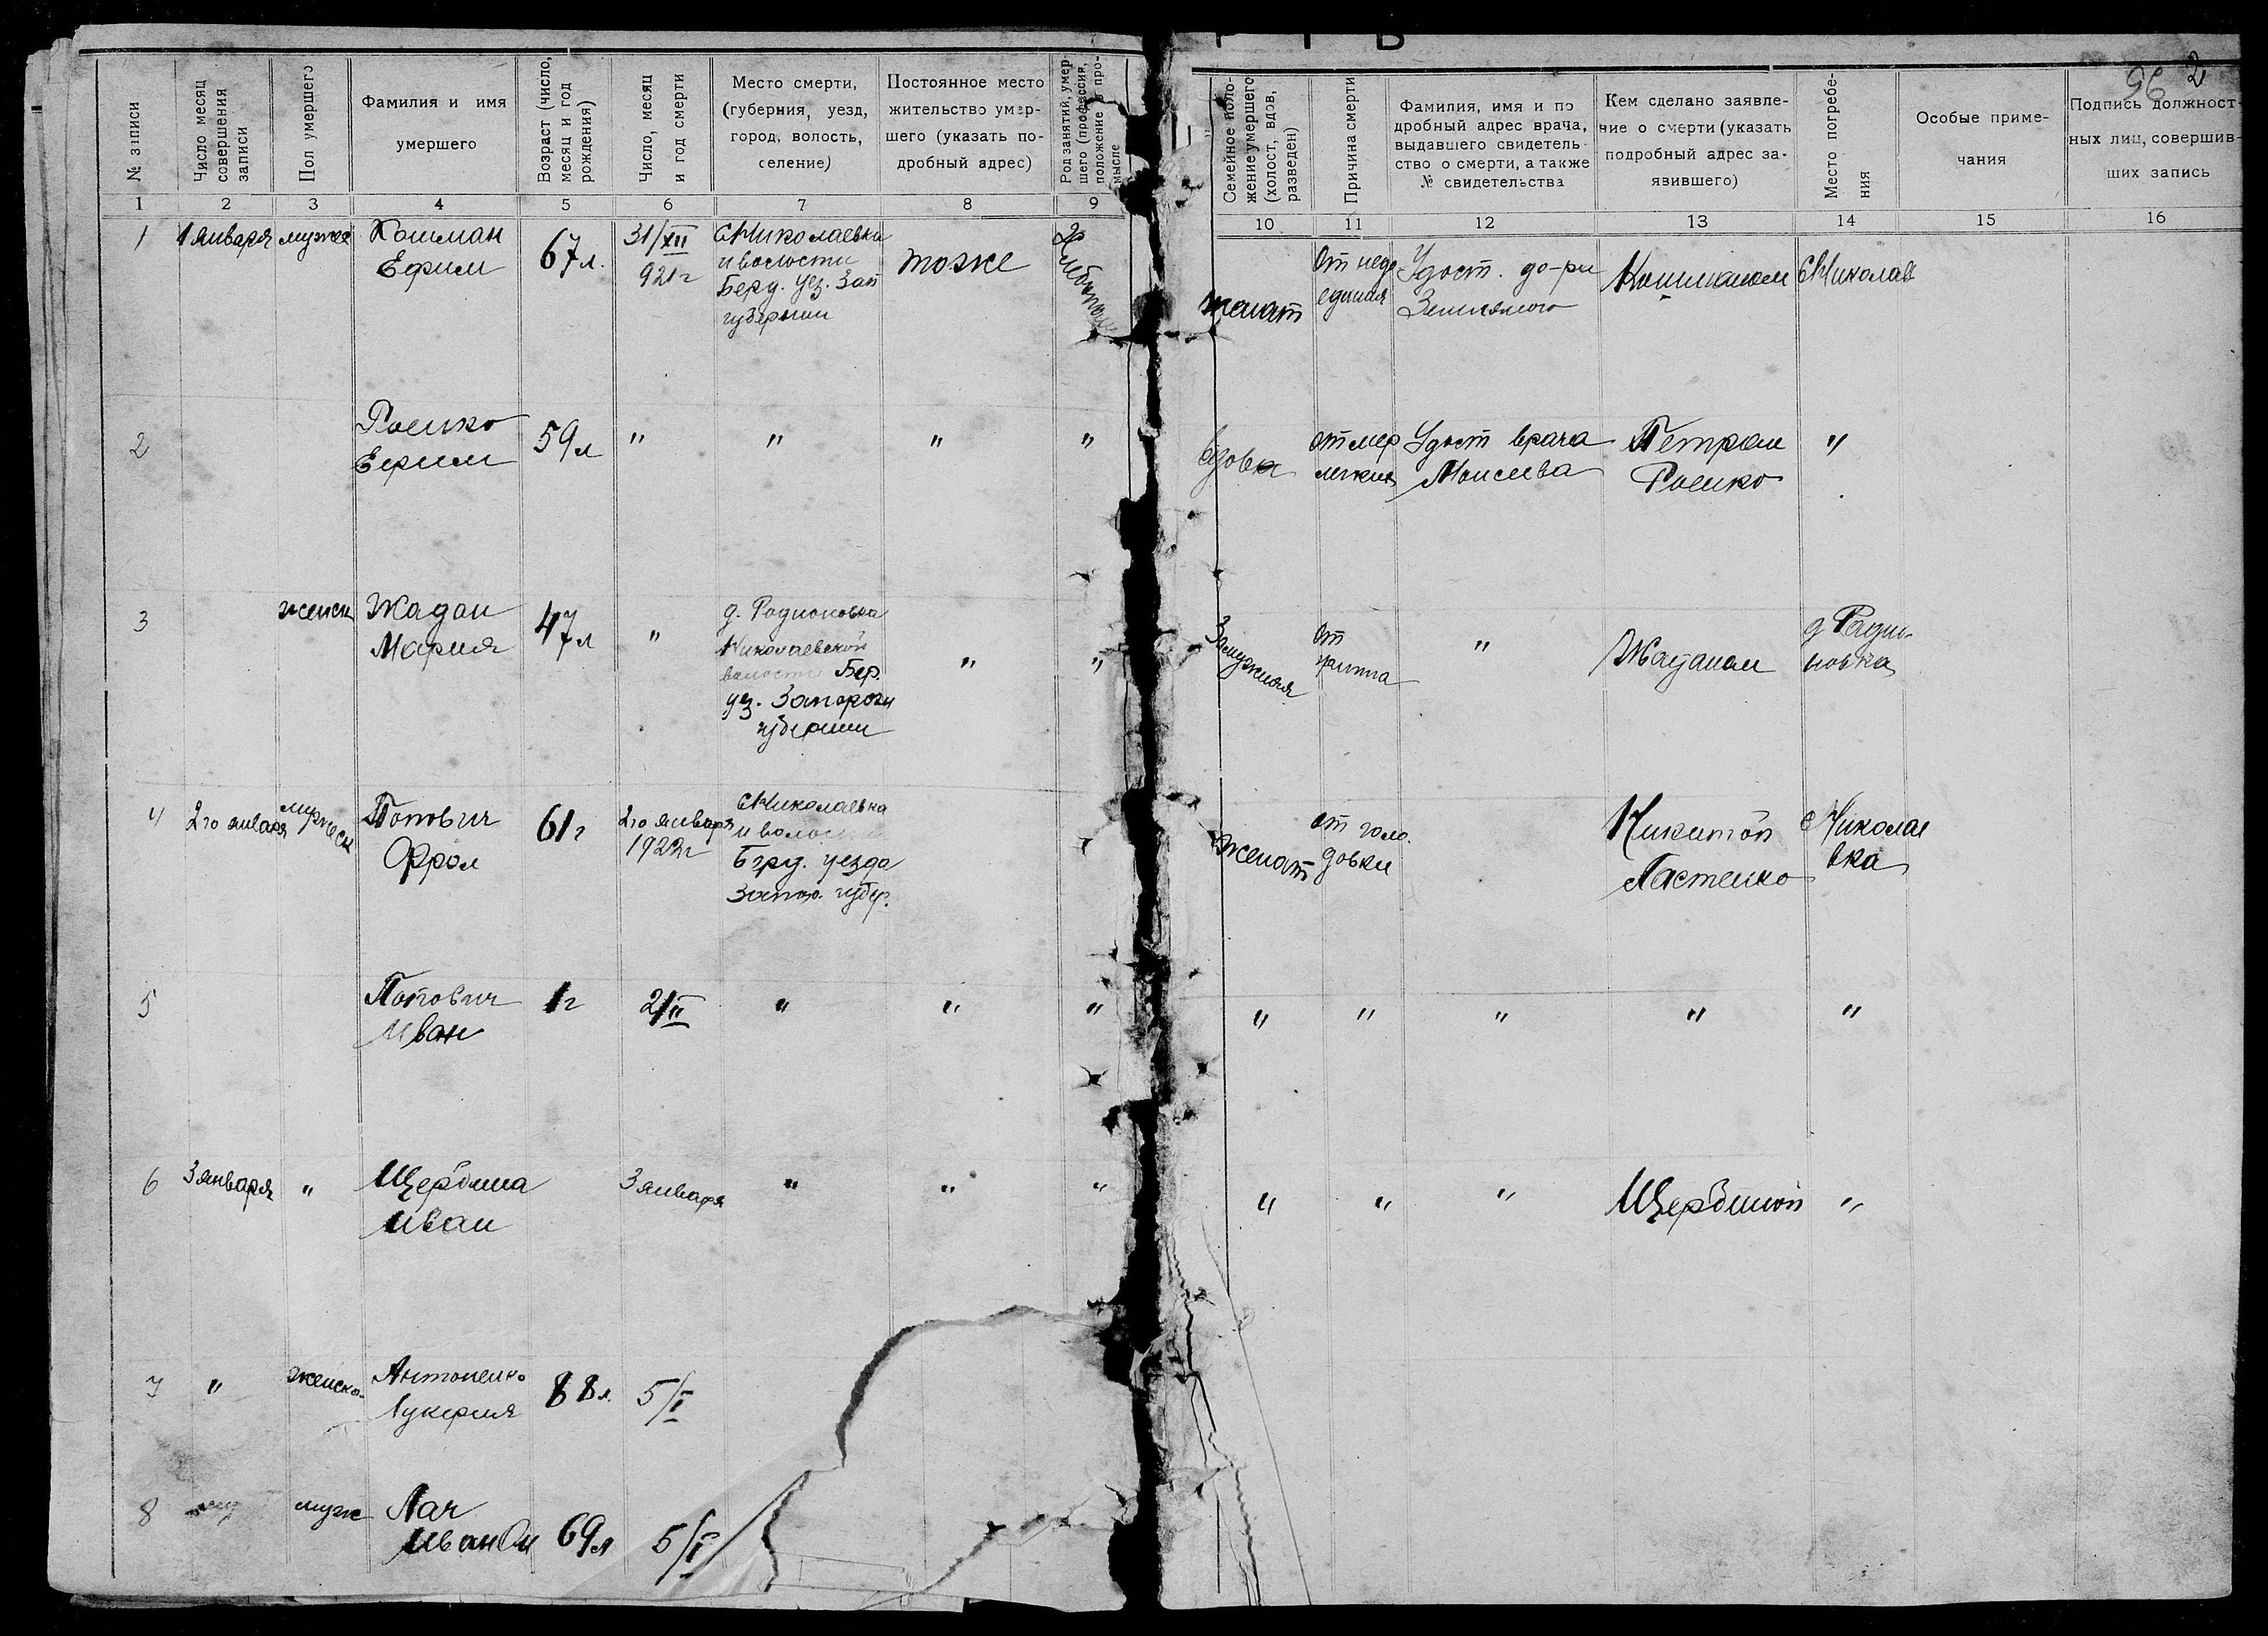 96 2
№ записи
Число месяц
совершения
записи
Пол умершего
Фамилия и имя
умершего
Возраст (число,
месяц и год
рождения)
Число, месяц
и год смерти
Место смерти,
(губерния, уезд,
город, волость,
селение)
Постоянное место
жительство умер-
шего (указать по-
дробный адрес)
Род занятий, умер-
шего (профессия,
положение в про-
мысле
Семейное поло-
жение умершего
(холост, вдов,
разведен)
Причина смерти
Фамилия, имя и по
дробный адрес врача,
выдавшего свидетель-
ство о смерти, а также
№ свидетельства
Кем сделано заявле-
ние о смерти (указать
подробный адрес за-
явившего)
Место погребе-
ния
Особые приме-
чания
Подпись должност-
ных лиц, совершив-
ших запись
1 2 3 4 5 6 7 8 9 10 11 12 13 14 15 16
1
1 января
мужес
Кошман
Ефим
67 л.
31/XII
921 г
С Николаевка
и волости
Берд. уез. Зап
губернии
тоже
Хлебопаш
женат
От неде
едания
Удост. до-ра
Кошманом
С Николаев
2
Роенко
Ефим
59 л
"
"
"
"
вдова
Удост врача
Моисеева
Петром
Роенко
"
3
женск
Жадан
Мария
47 л
"
д. Родионовка
Николаевской
волости Бер.
уз. Запорож
губернии
"
"
Замужняя
от
"
Жаданом
д Радио-
новка
4
2го января
мужеск
Попович
Фрол
61 г
2го января
1922 г
С Николаевка
и волости
Берд. уезда
Запор. губер.
женат
от голо.
довки
Никитой
Ластенко
С Николае
вка
5
Попович
Иван
1 г
2/II
"
"
"
"
"
"
"
"
6
3 января
"
Щербина
Иван
3 января
"
"
"
"
"
"
Щербиной
"
7
"
женско-
Антоненко
Лукерия
88 л.
5/I
8
муж
Лач
Иван
69 л
5/I